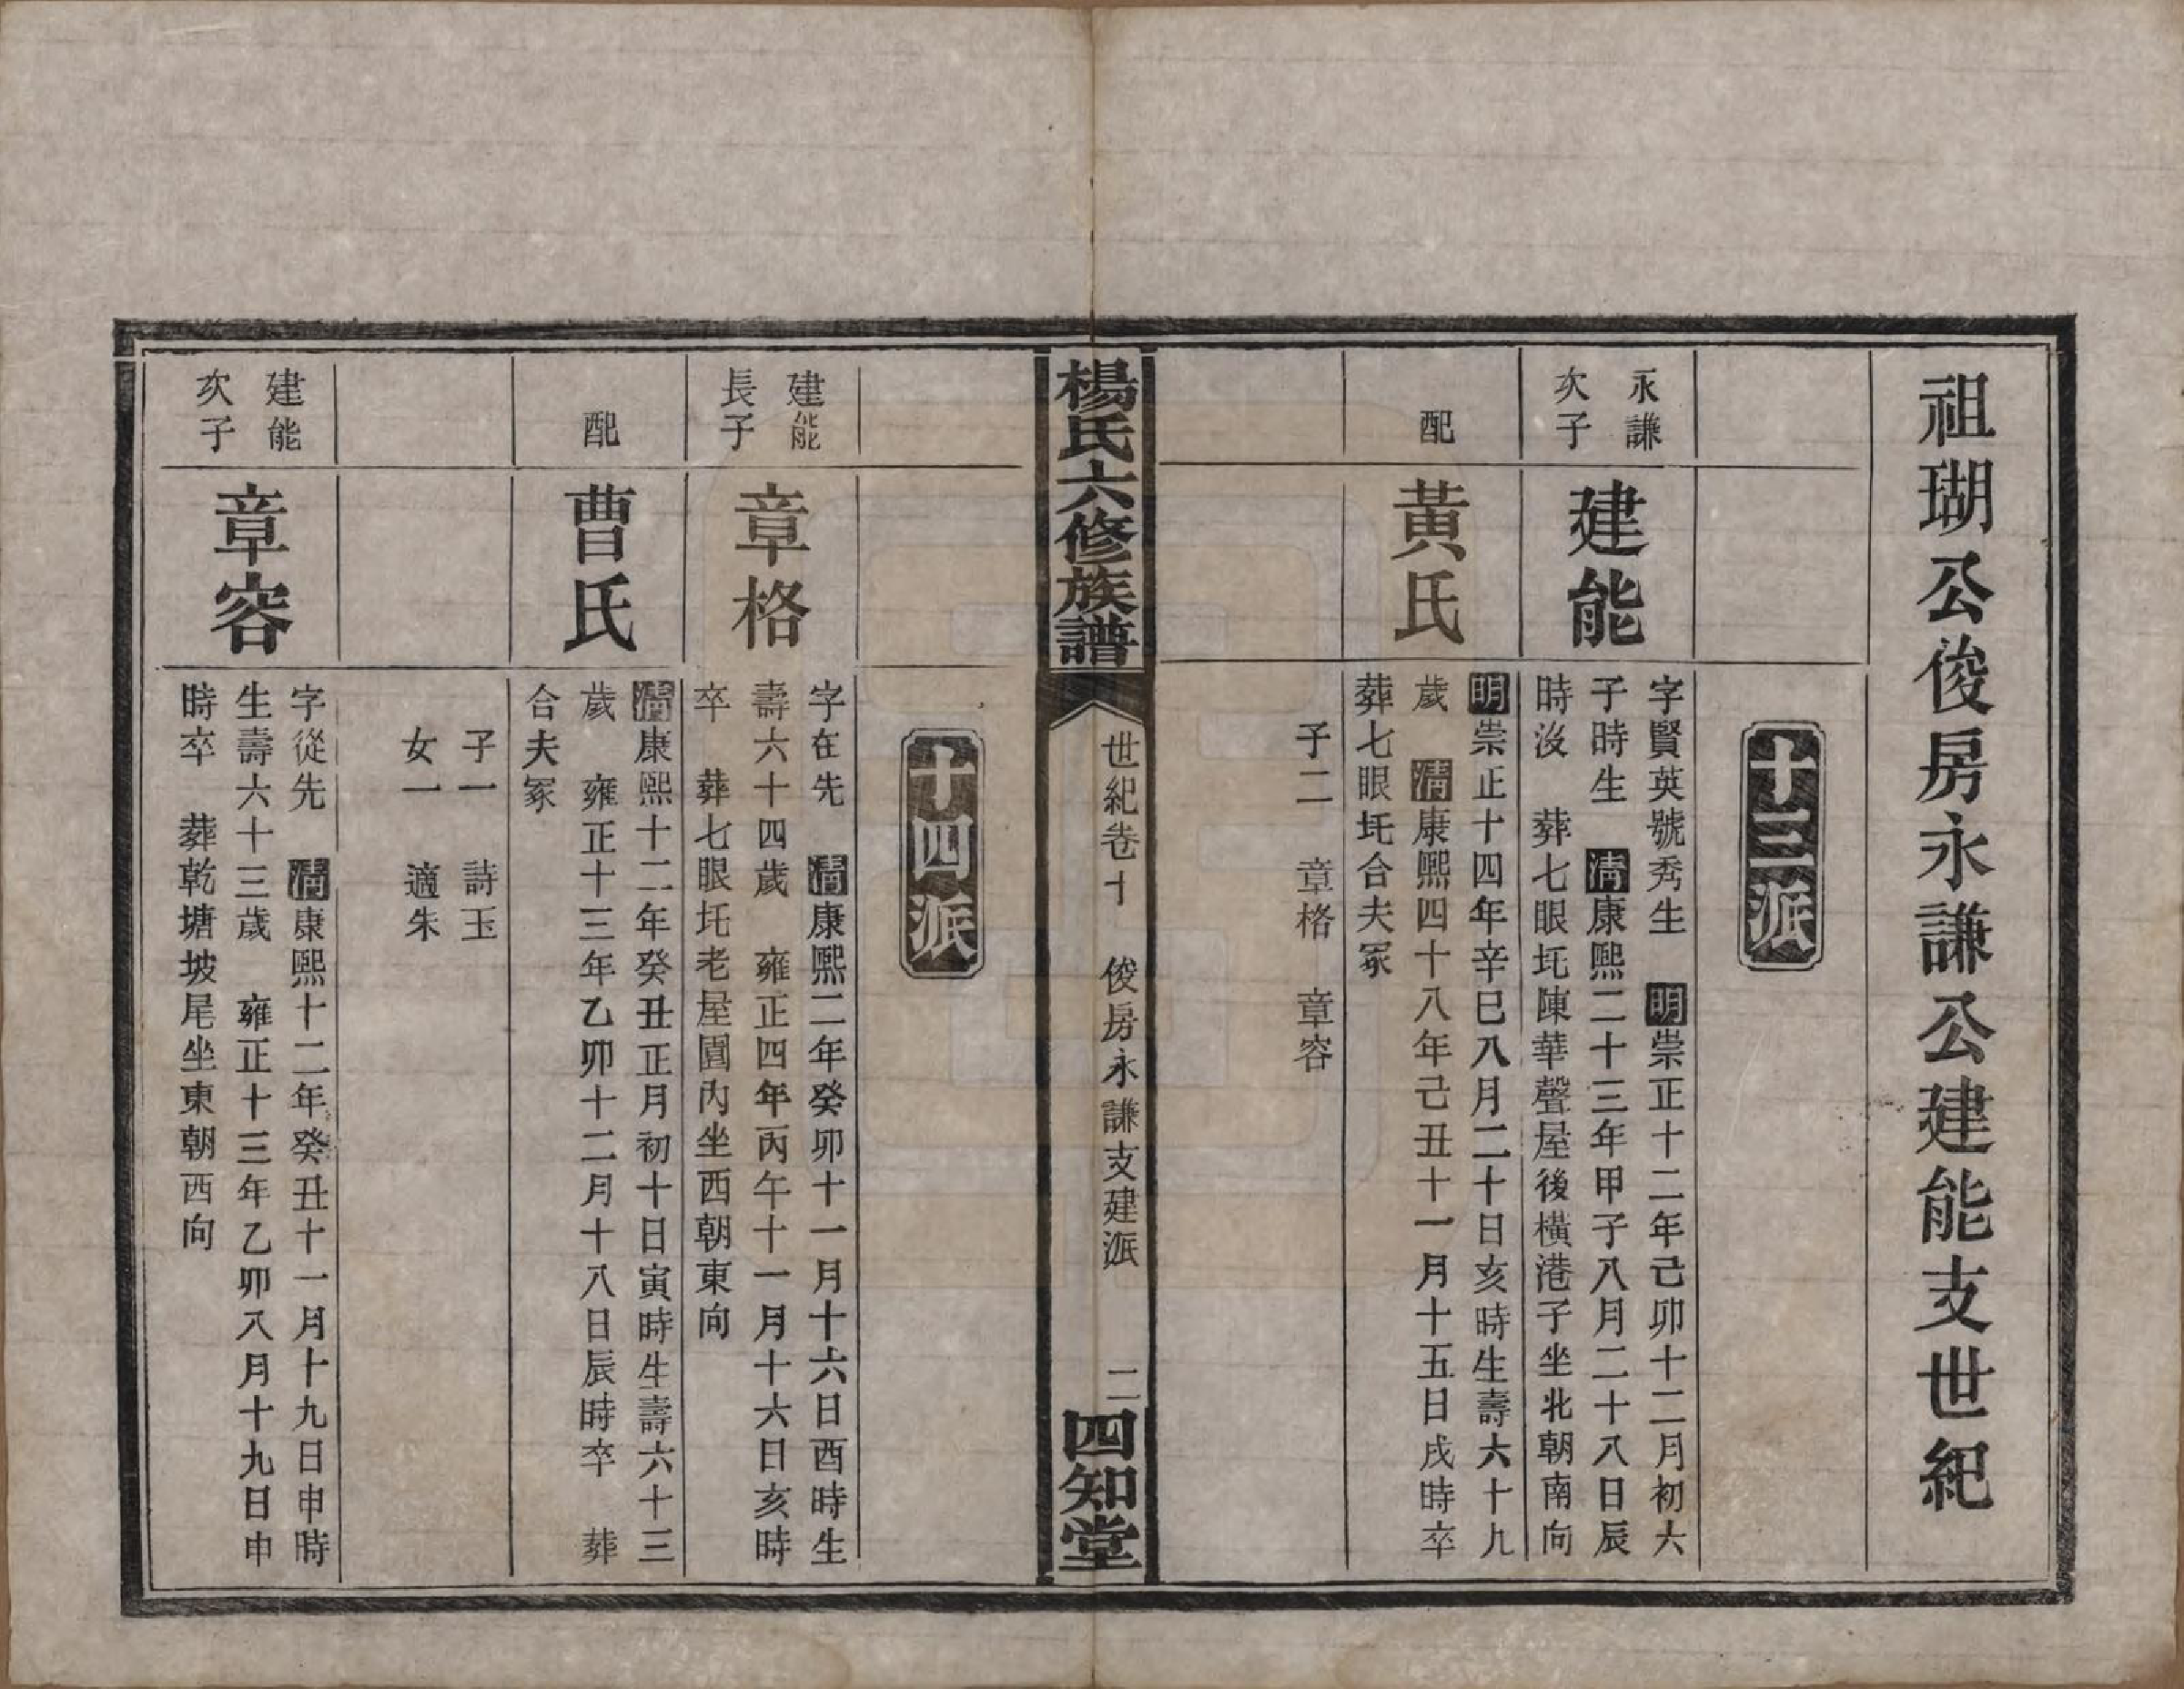 祖瑚公俊房永謙公建能支世紀
十三派
永謙
次子
建能
字賢英號秀生　明崇正十二年己卯十二月初六
子時生　清康熙二十三年甲子八月二十八日辰
時沒　葬七眼圫陳華聲屋後橫港子坐北朝南向
配
黃氏
明崇正十四年辛巳八月二十日亥時生壽六十九
歲　清康熙四十八年己丑十一月十五日戌時卒
葬七眼圫合夫冢
子二　章格　章容
楊氏六修族譜
世紀卷十　俊房永謙支建派　二
四知堂
十四派
建能
長子
章格
字在先　清康熙二年癸卯十一月十六日酉時生
壽六十四歲　雍正四年丙午十一月十六日亥時
卒　葬七眼圫老屋園內坐西朝東向
配
曹氏
清康熙十二年癸丑正月初十日寅時生壽六十三
歲　雍正十三年乙卯十二月十八日辰時卒　葬
合夫冢
子一　詩玉
女一　適朱
建能
次子
章容
字從先　清康熙十二年癸丑十一月十九日申時
生壽六十三歲　雍正十三年乙卯八月十九日申
時卒　葬乾塘坡尾坐東朝西向